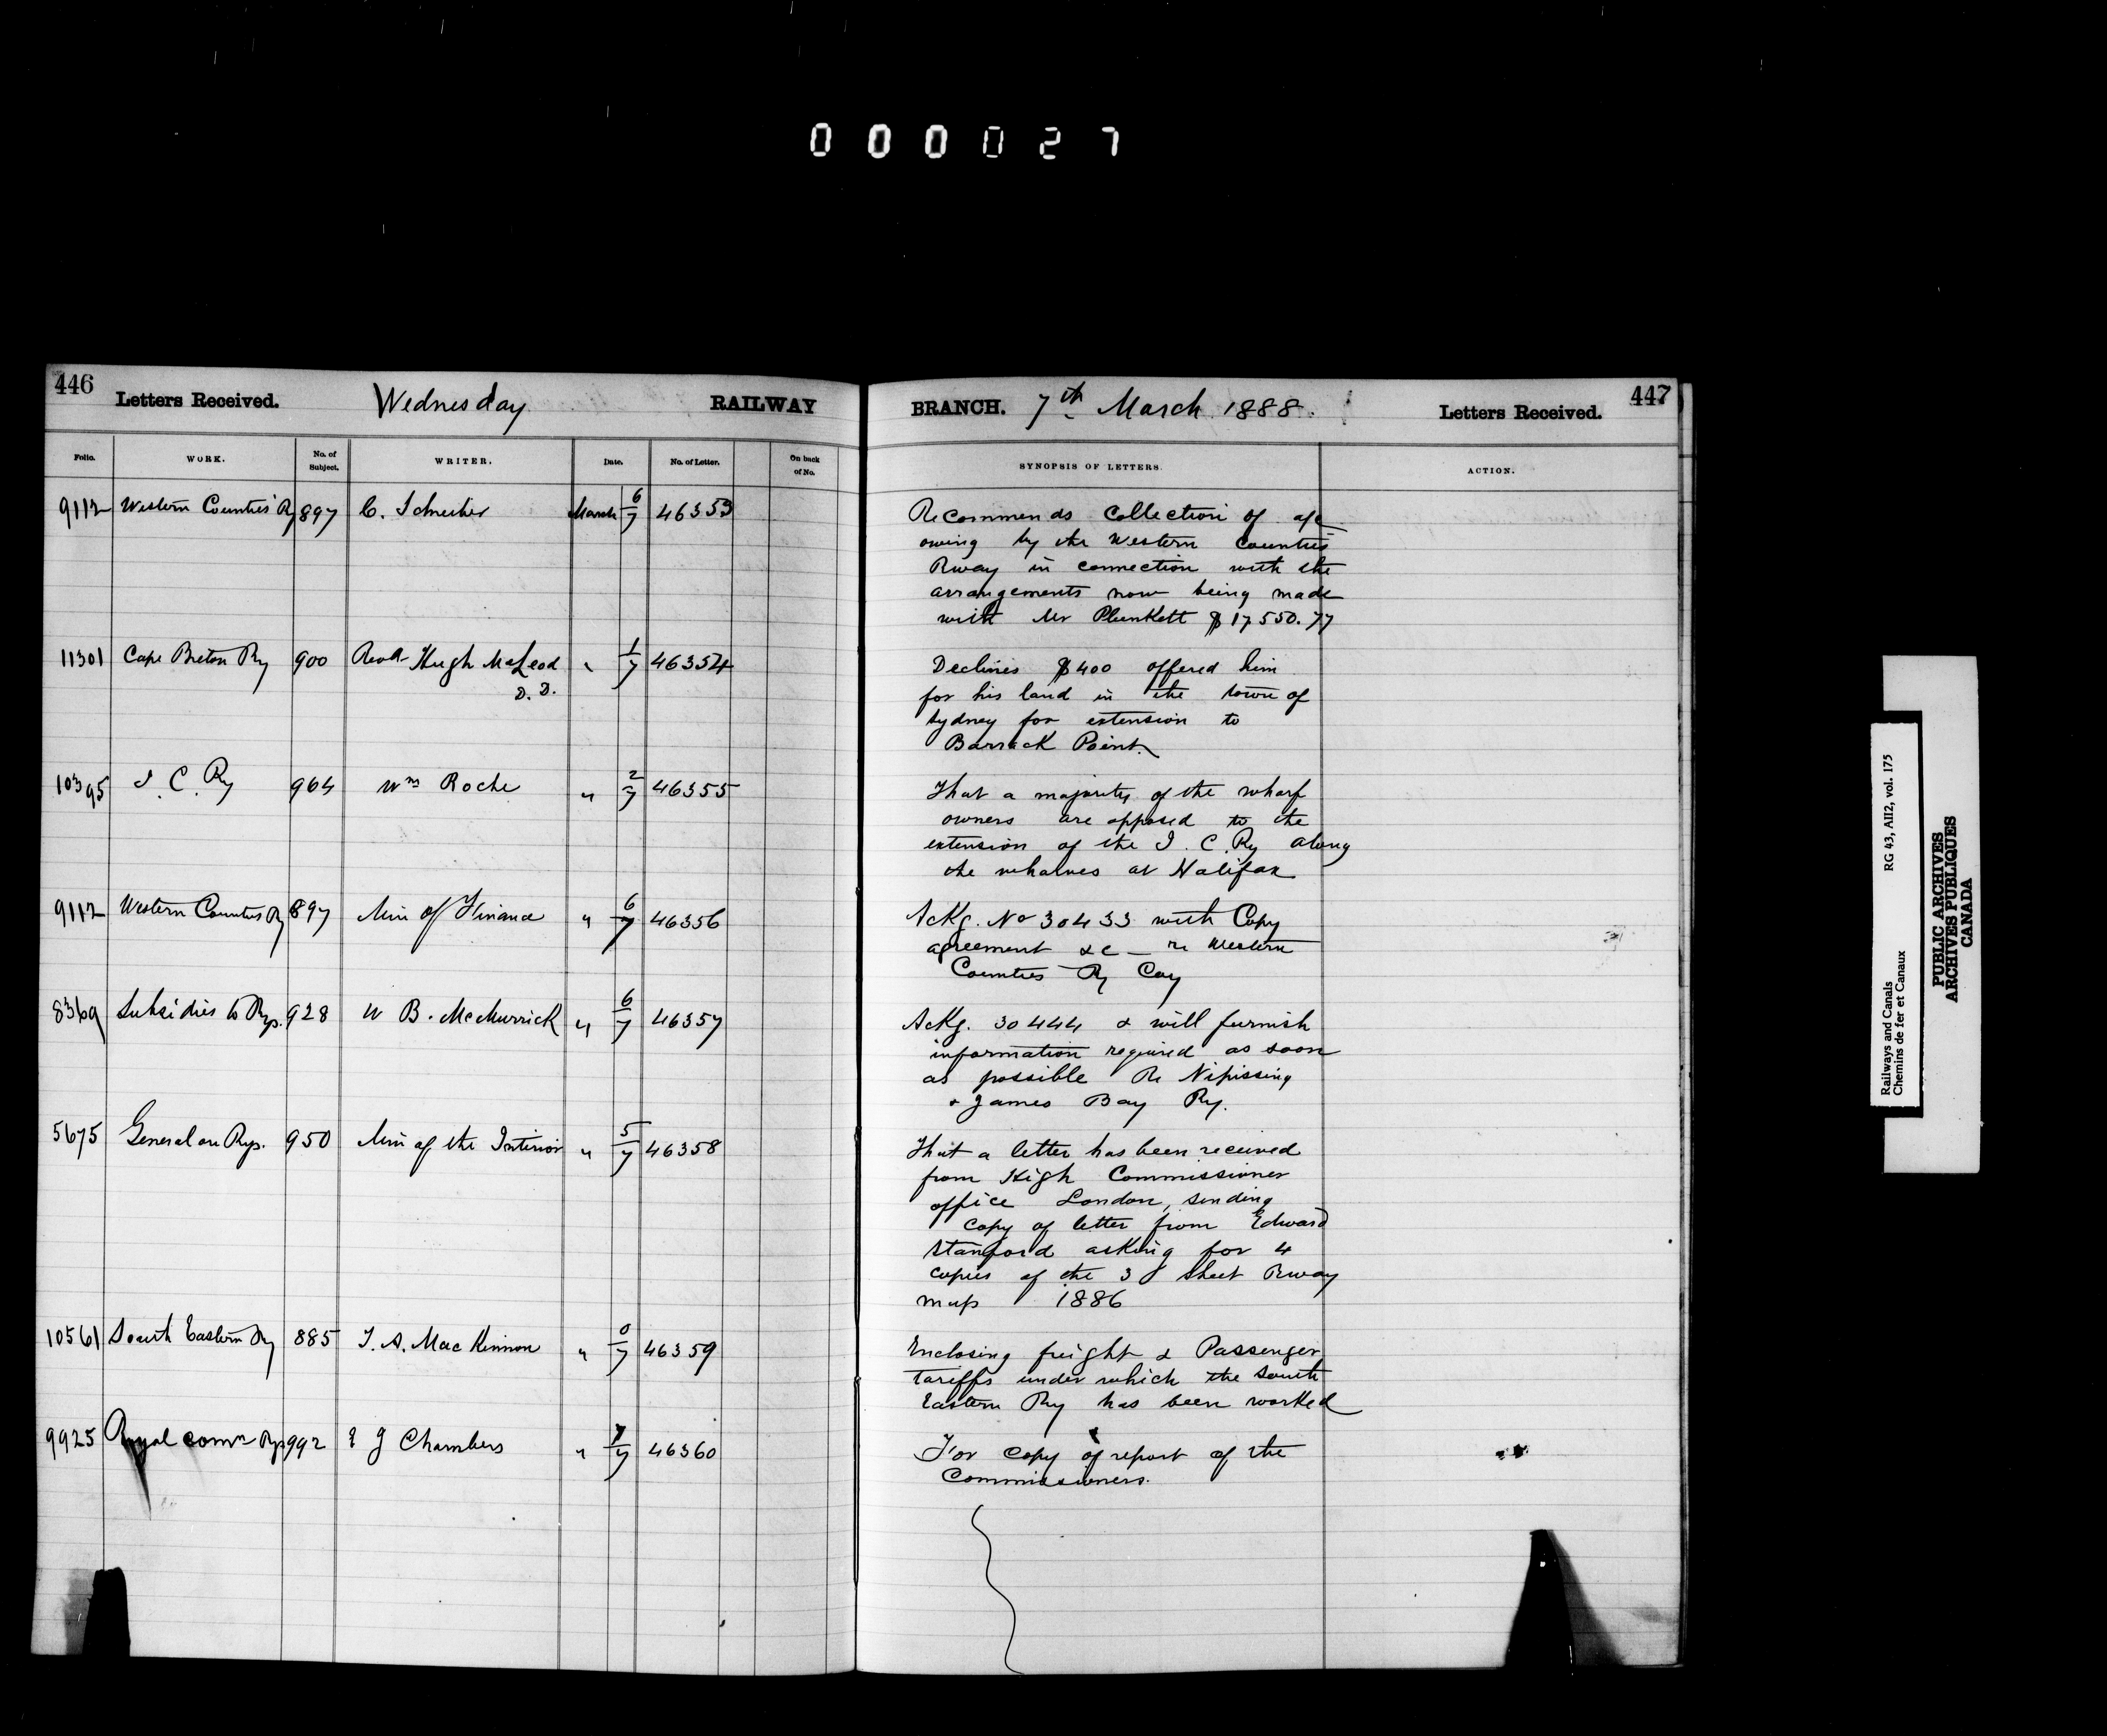 000027
446 Letters Received. Wednesday RAILWAY
BRANCH. 7th March 1888. Letters Received. 447
Folio. WORK. No. of Subject. WRITER. Date. No. of Letter. On back of No.
SYNOPSIS OF LETTERS. ACTION.
9112 Western Counties Ry 897 C. Schreiber March 6/7 46353
Recommends Collection of a/c
owing by the Western Counties
Rway in connection with the
arrangements now being made
with Mr Plunkett $17550.77
11301 Cape Breton Ry 900 Revd Hugh McLeod " 1/7 46354
D. D.
Declines $400 offered him
for his land in the town of
Sydney for extension to
Barrack Point.
10395 I. C. Ry 964 Wm Roche " 2/7 46355
That a majority of the wharf
owners are opposed to the
extension of the I. C. Ry along
the wharves at Halifax
9112 Western Counties Ry 897 Min of Finance " 6/7 46356
Ackg. No 30433 with Copy
agreement &c — re Western
Counties Ry Coy
8369 Subsidies to Rys. 928 W B. McMurrick " 6/7 46357
Ackg. 30444 & will furnish
information required as soon
as possible Re Nipissing
& James Bay Ry.
5675 General on Rys. 950 Min of the Interior " 5/7 46358
That a letter has been received
from High Commissioner
office London, sending
Copy of letter from Edward
Stanford asking for 4
copies of the 3 sheet Rway
map 1886
10561 South Eastern Ry 885 T. A. MacKinnon " 0/7 46359
Enclosing freight & Passenger
tariffs under which the South
Eastern Ry has been worked
9925 Royal comn Rys 992 E J Chambers " 7/7 46360
For Copy of report of the
Commissioners.
Railways and Canals RG 43, AII2, vol. 175
Chemins de fer et Canaux
PUBLIC ARCHIVES
ARCHIVES PUBLIQUES
CANADA